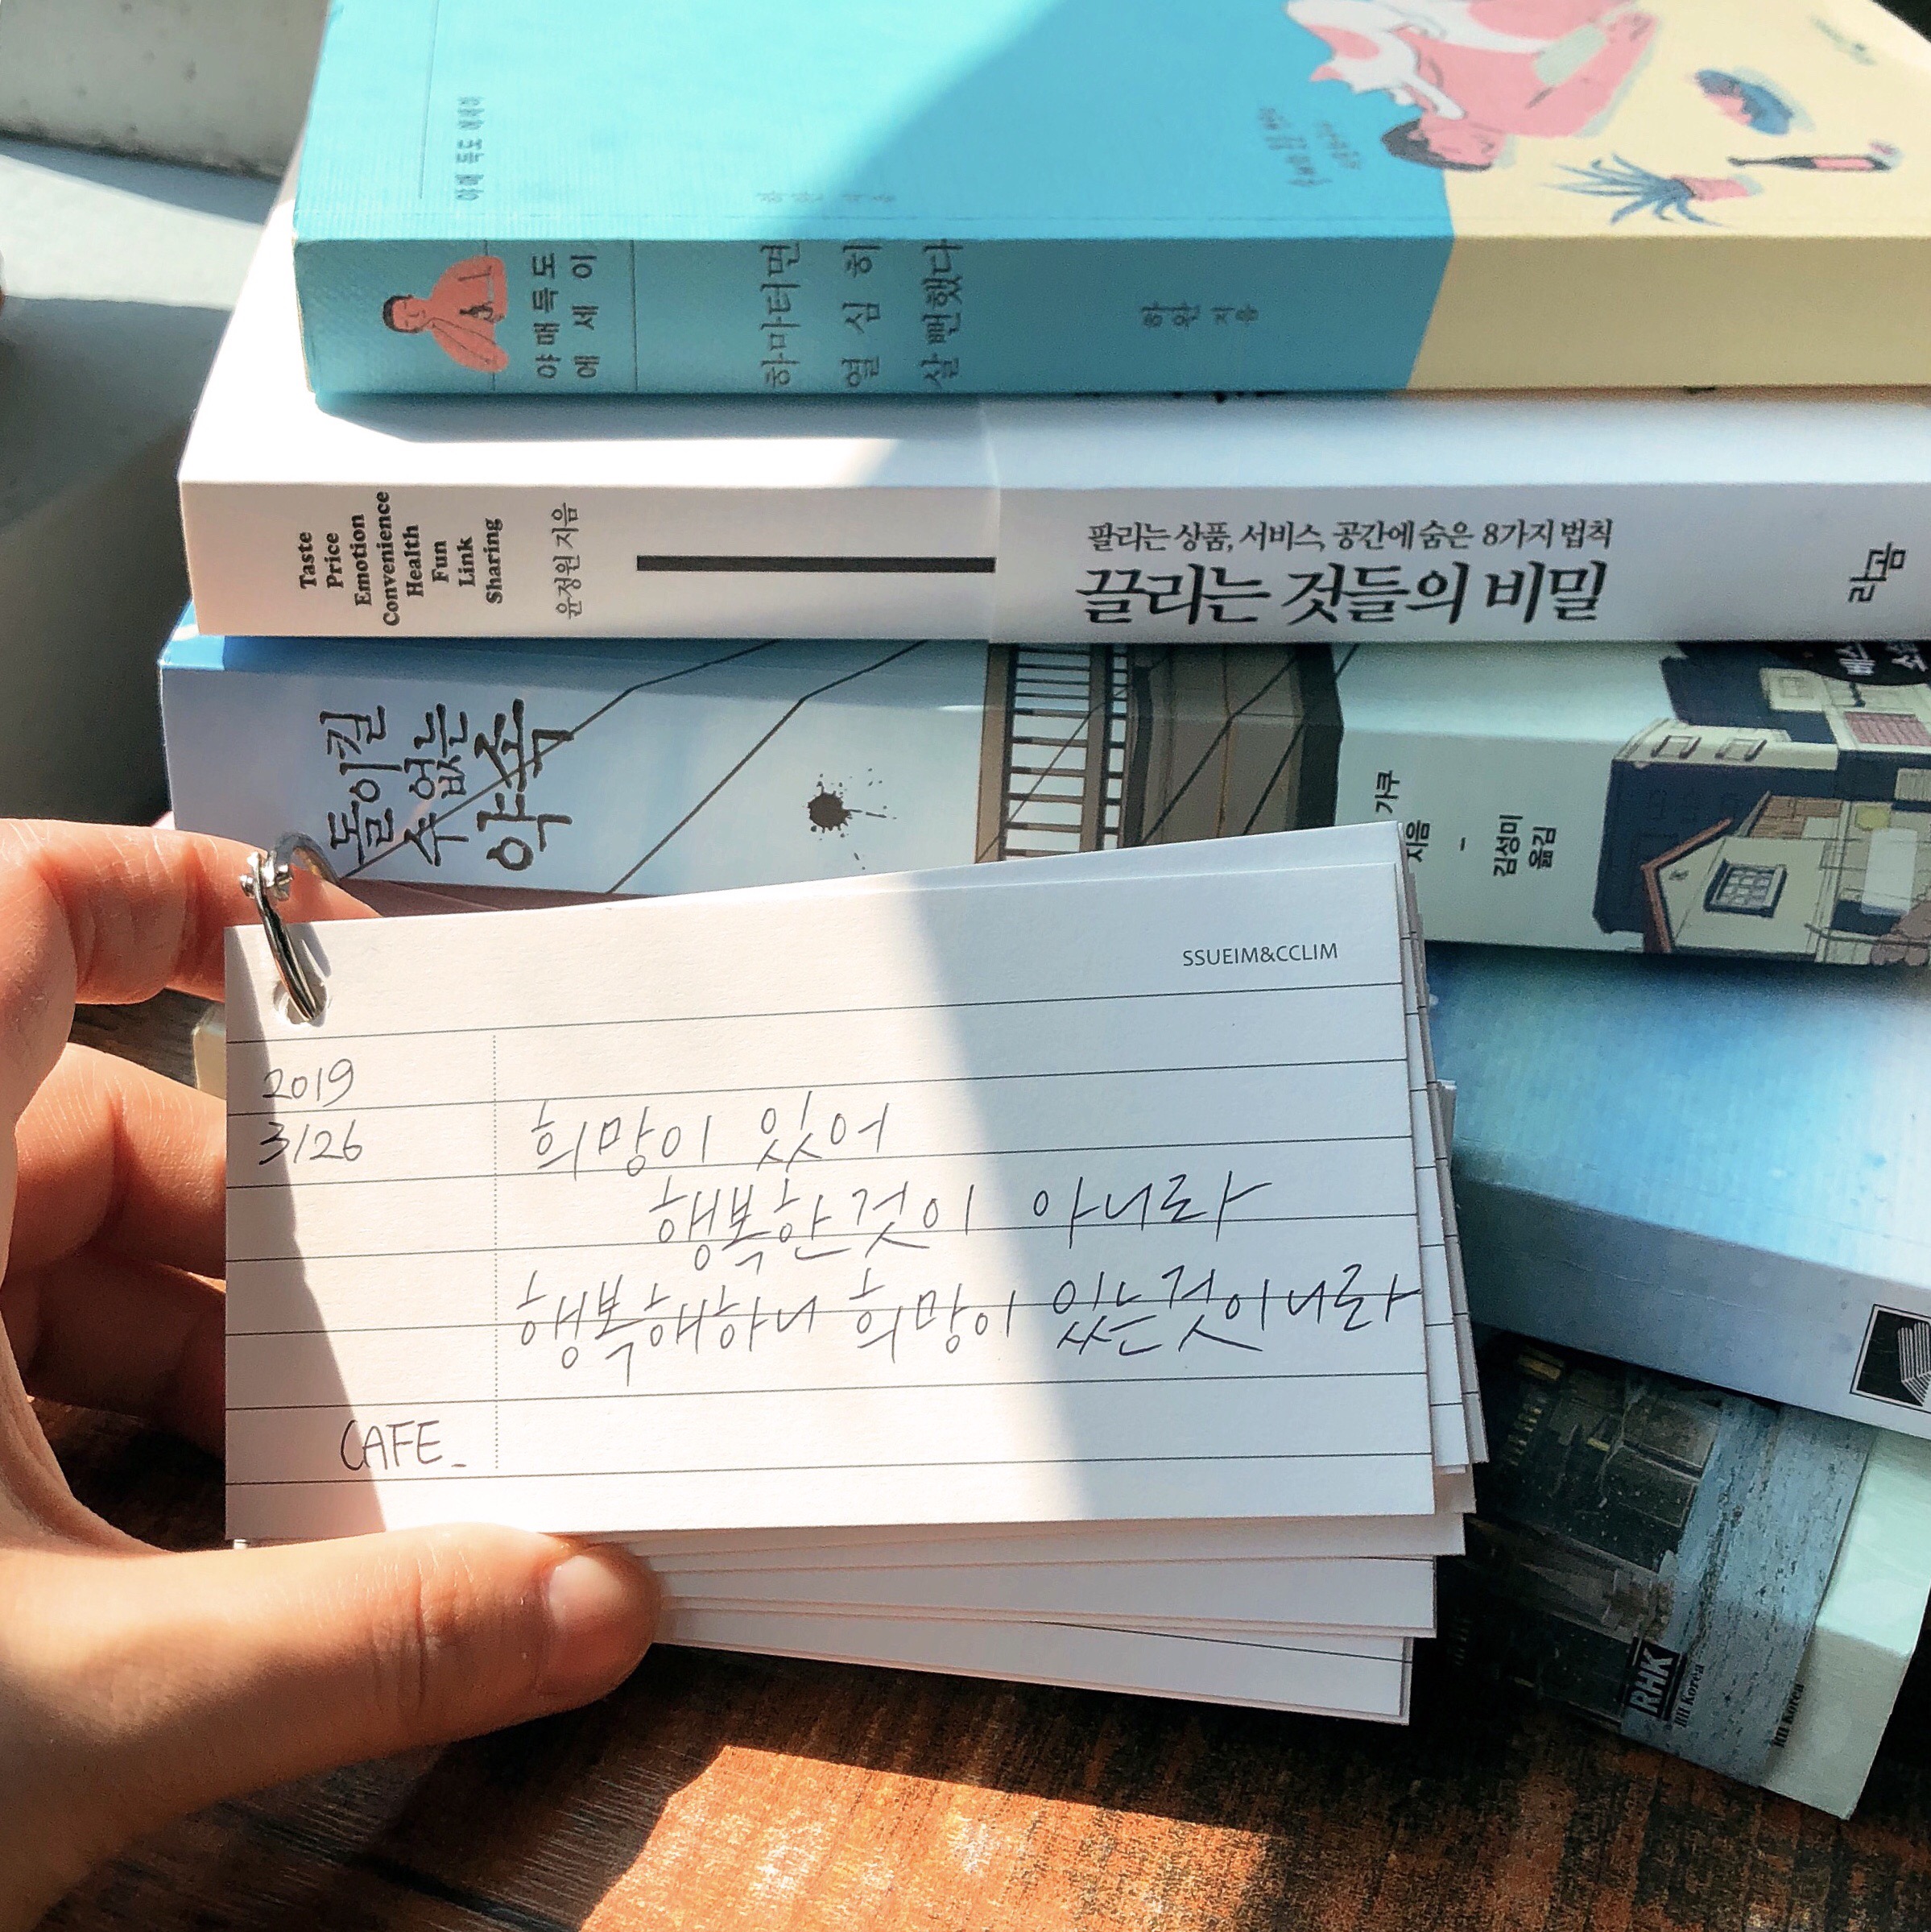 야매득도 에세이
야매득도
에세이
하마터면
열심히
살뻔했다
하완 지음
Taste
Price
Emotion
Convenience
Health
Fun
Link
Sharing
윤정원 지음
팔리는 상품, 서비스, 공간에 숨은 8가지 법칙
끌리는 것들의 비밀
라곰
돌이킬
수 없는
약속
가쿠
지음
-
김성미
옮김
SSUEIM&CCLIM
2019
3/26
희망이 있어
행복한것이 아니라
행복해하니 희망이 있는것이니라
CAFE.
RHK
RH Korea
RH Korea